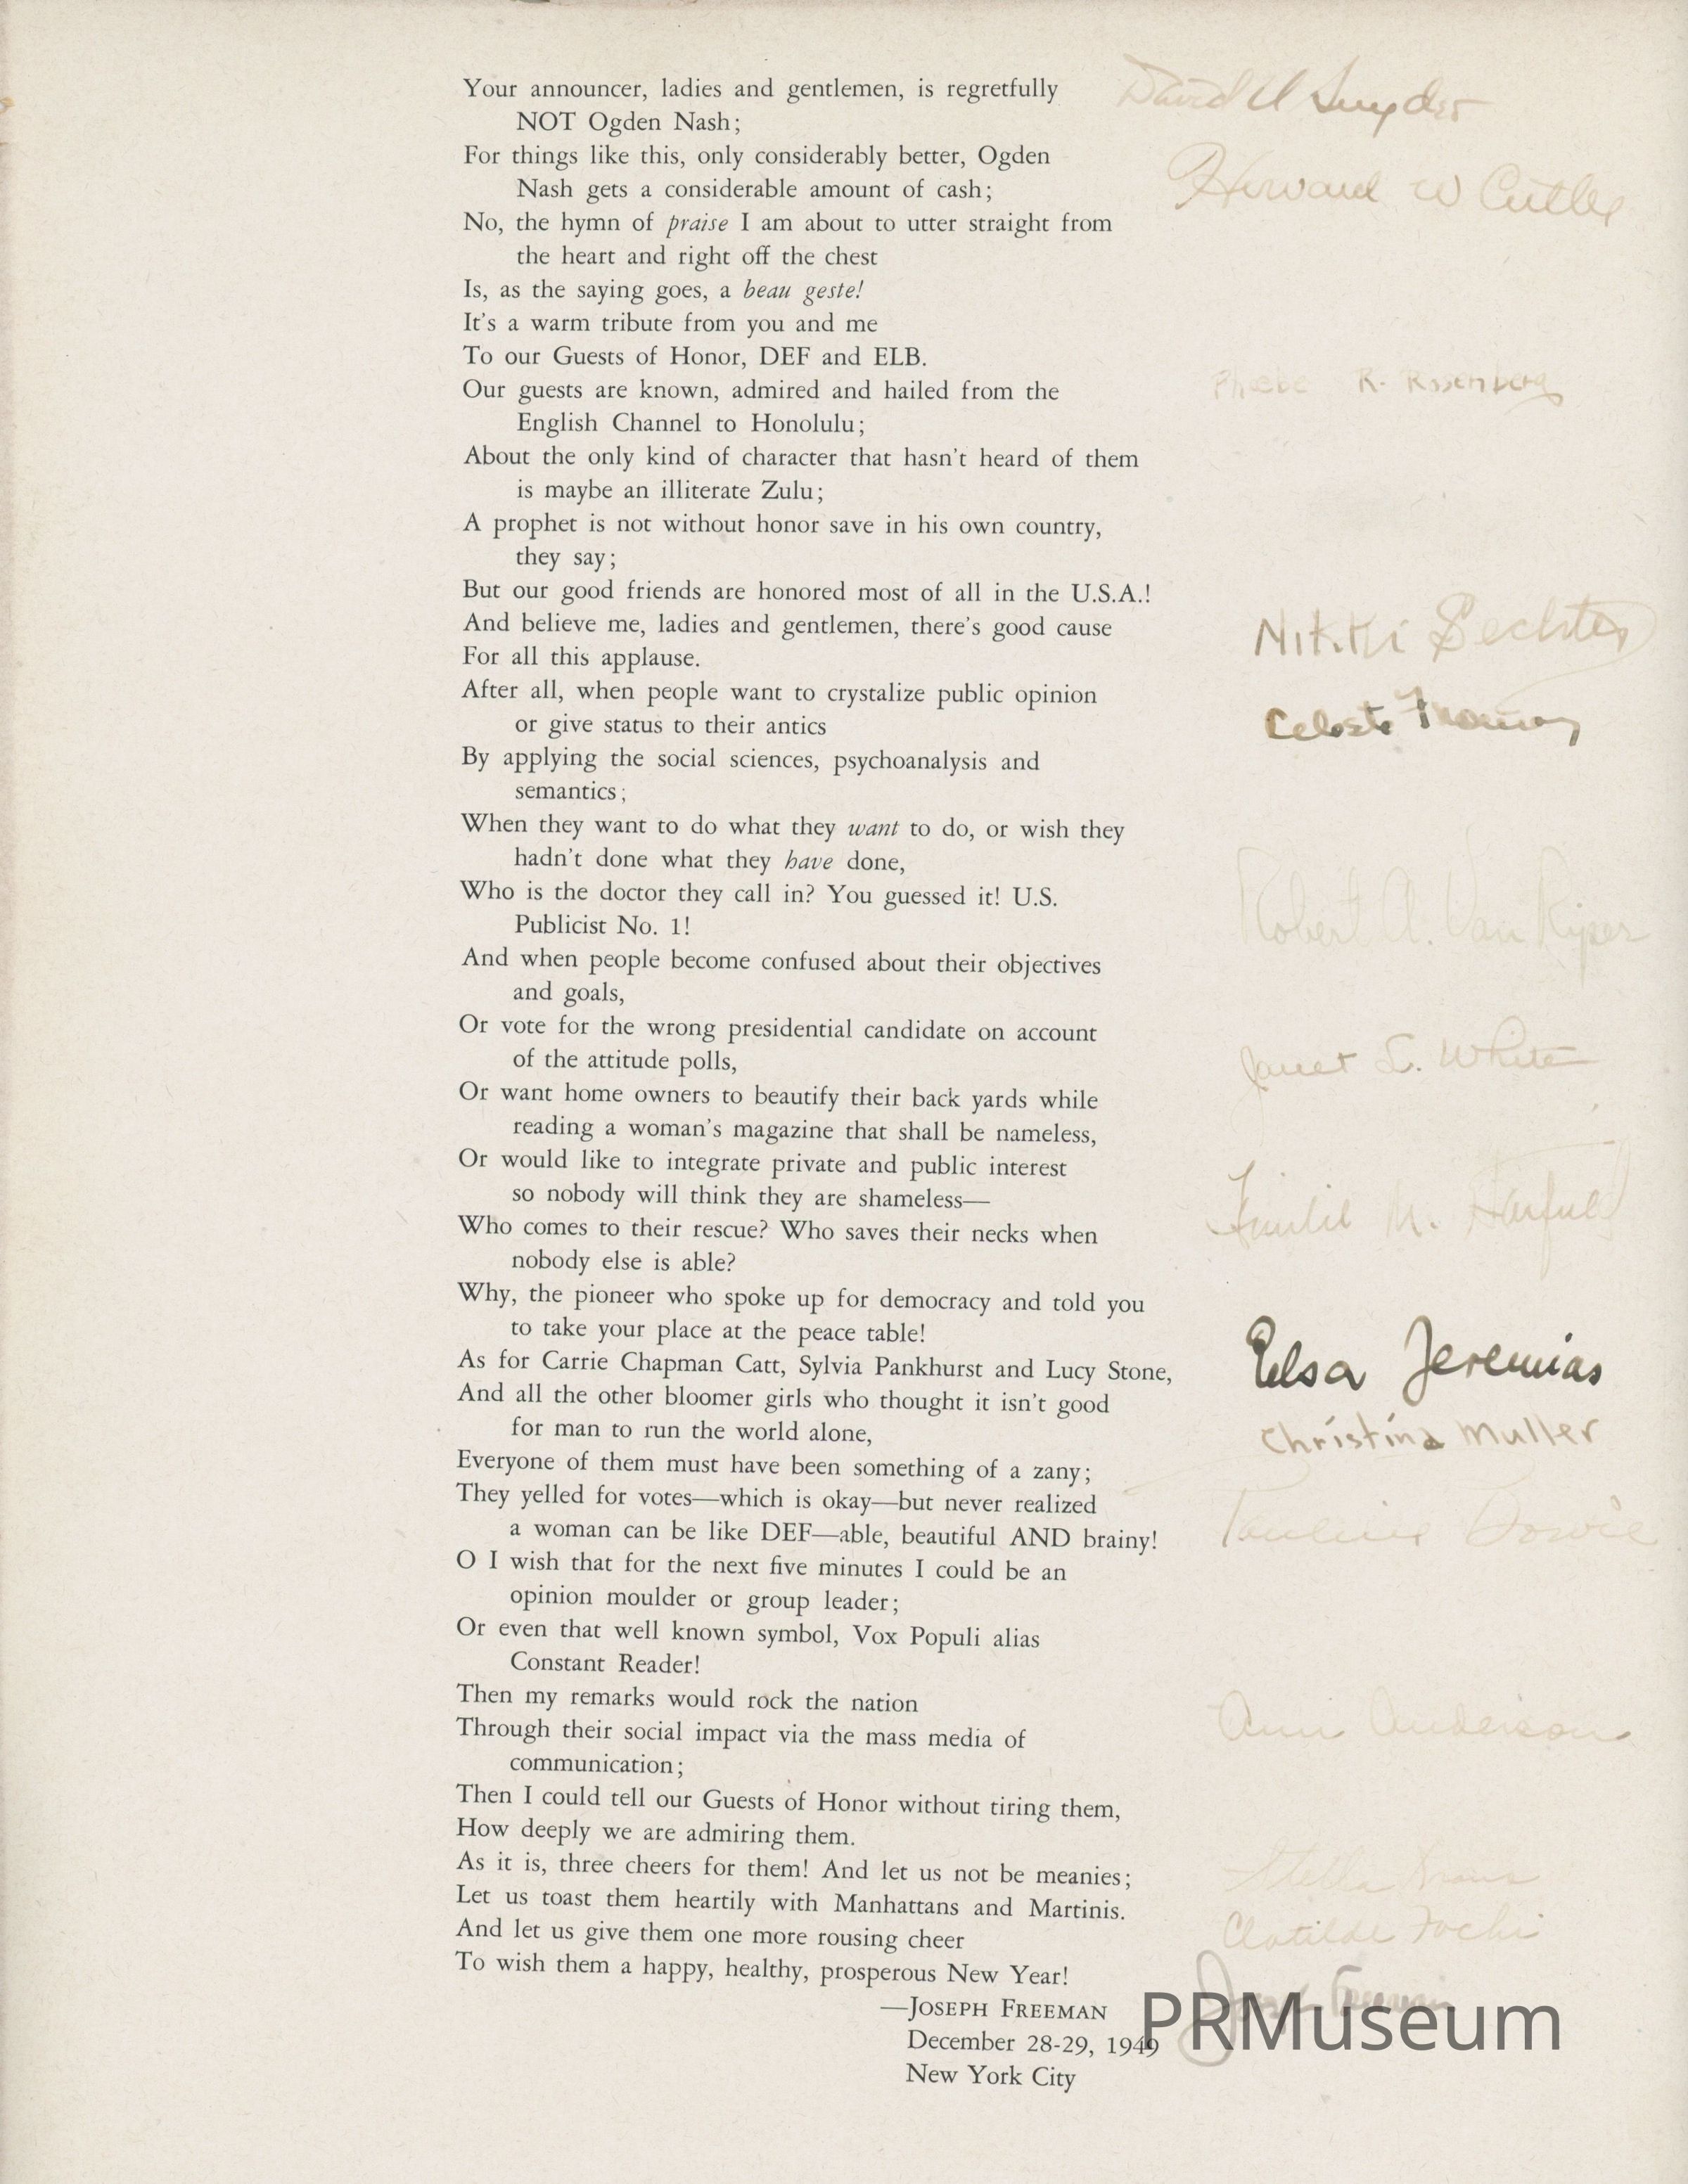 Your announcer, ladies and gentlemen, is regretfully
NOT Ogden Nash;
For things like this, only considerably better, Ogden
Nash gets a considerable amount of cash;
No, the hymn of praise I am about to utter straight from
the heart and right off the chest
Is, as the saying goes, a beau geste!
It's a warm tribute from you and me
To our Guests of Honor, DEF and ELB.
Our guests are known, admired and hailed from the
English Channel to Honolulu;
About the only kind of character that hasn't heard of them
is maybe an illiterate Zulu;
A prophet is not without honor save in his own country,
they say;
But our good friends are honored most of all in the U.S.A.!
And believe me, ladies and gentlemen, there's good cause
For all this applause.
After all, when people want to crystalize public opinion
or give status to their antics
By applying the social sciences, psychoanalysis and
semantics;
When they want to do what they want to do, or wish they
hadn't done what they have done,
Who is the doctor they call in? You guessed it! U.S.
Publicist No. 1!
And when people become confused about their objectives
and goals,
Or vote for the wrong presidential candidate on account
of the attitude polls,
Or want home owners to beautify their back yards while
reading a woman's magazine that shall be nameless,
Or would like to integrate private and public interest
so nobody will think they are shameless—
Who comes to their rescue? Who saves their necks when
nobody else is able?
Why, the pioneer who spoke up for democracy and told you
to take your place at the peace table!
As for Carrie Chapman Catt, Sylvia Pankhurst and Lucy Stone,
And all the other bloomer girls who thought it isn't good
for man to run the world alone,
Everyone of them must have been something of a zany;
They yelled for votes—which is okay—but never realized
a woman can be like DEF—able, beautiful AND brainy!
O I wish that for the next five minutes I could be an
opinion moulder or group leader;
Or even that well known symbol, Vox Populi alias
Constant Reader!
Then my remarks would rock the nation
Through their social impact via the mass media of
communication;
Then I could tell our Guests of Honor without tiring them,
How deeply we are admiring them.
As it is, three cheers for them! And let us not be meanies;
Let us toast them heartily with Manhattans and Martinis.
And let us give them one more rousing cheer
To wish them a happy, healthy, prosperous New Year!
—JOSEPH FREEMAN
December 28-29, 1949
New York City
David Snyder
Howard W Cutler
Phoebe R. Rosenberg
Nikki
Celeste
Robert A. Van Riper
Janet L. White
M.
Elsa Jeremias
Christina Muller
Pauline Bowie
Ann Anderson
Stella
Clotilde
Joseph Freeman
PRMuseum